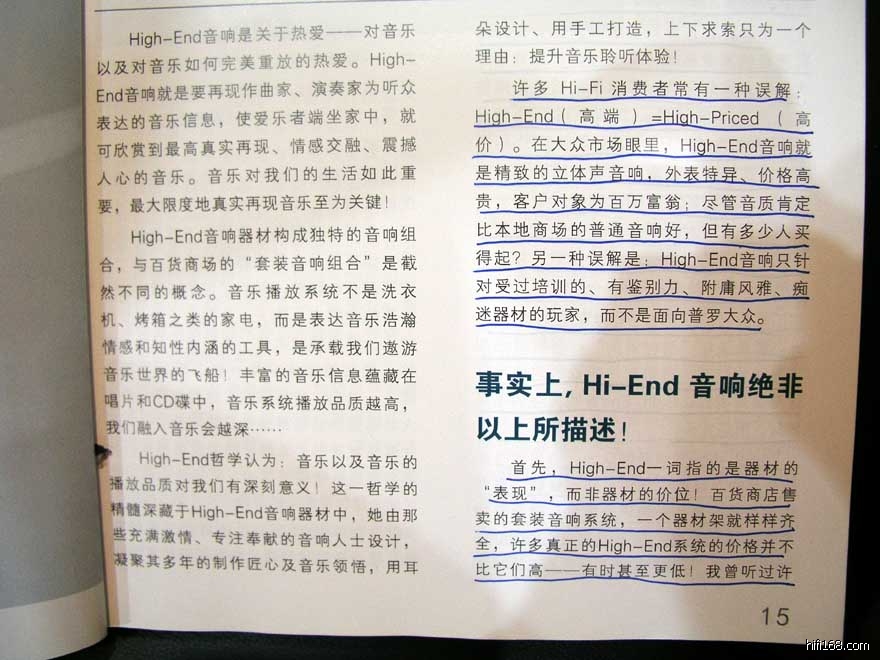 High-End音响是关于热爱——对音乐
以及对音乐如何完美重放的热爱。High-
End音响就是要再现作曲家、演奏家为听众
表达的音乐信息，使爱乐者端坐家中，就
可欣赏到最高真实再现、情感交融、震撼
人心的音乐。音乐对我们的生活如此重
要，最大限度地真实再现音乐至为关键！
High-End音响器材构成独特的音响组
合，与百货商场的“套装音响组合”是截
然不同的概念。音乐播放系统不是洗衣
机、烤箱之类的家电，而是表达音乐浩瀚
情感和知性内涵的工具，是承载我们遨游
音乐世界的飞船！丰富的音乐信息蕴藏在
唱片和CD碟中，音乐系统播放品质越高，
我们融入音乐会越深……
High-End哲学认为：音乐以及音乐的
播放品质对我们有深刻意义！这一哲学的
精髓深藏于High-End音响器材中，她由那
些充满激情、专注奉献的音响人士设计，
凝聚其多年的制作匠心及音乐领悟，用耳
朵设计、用手工打造，上下求索只为一个
理由：提升音乐聆听体验！
许多 Hi-Fi 消费者常有一种误解：
High-End（高端）=High-Priced（高
价）。在大众市场眼里，High-End音响就
是精致的立体声音响，外表特异、价格高
贵，客户对象为百万富翁；尽管音质肯定
比本地商场的普通音响好，但有多少人买
得起？另一种误解是：High-End音响只针
对受过培训的、有鉴别力、附庸风雅、痴
迷器材的玩家，而不是面向普罗大众。
事实上，Hi-End 音响绝非
以上所描述！
首先，High-End一词指的是器材的
“表现”，而非器材的价位！百货商店售
卖的套装音响系统，一个器材架就样样齐
全，许多真正的High-End系统的价格并不
比它们高——有时甚至更低！我曾听过许
15
hifi168.com